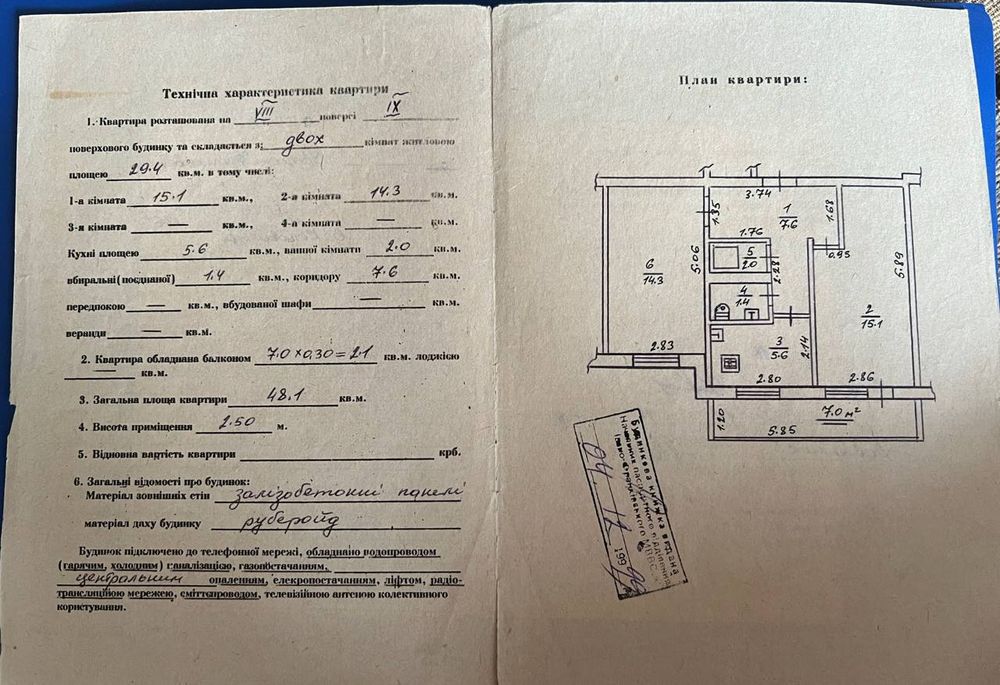 Технічна характеристика квартири
1. Квартира розташована на VIII поверсі IX
поверхового будинку та складається з: двох кімнат житловою
площею 29.4 кв.м. в тому числі:
1-а кімната 15.1 кв.м., 2-а кімната 14.3 кв.м.
3-я кімната — кв.м., 4-а кімната — кв.м.
Кухні площею 5.6 кв.м., ванної кімнати 2.0 кв.м.
вбиральні (поєднаної) 1.4 кв.м., коридору 7.6 кв.м.
передпокою — кв.м., вбудованої шафи — кв.м.
веранди — кв.м.
2. Квартира обладнана балконом 7.0 x 0,30 = 2.1 кв.м. лоджією
— кв.м.
3. Загальна площа квартири 48.1 кв.м.
4. Висота приміщення 2.50 м.
5. Відновна вартість квартири крб.
6. Загальні відомості про будинок:
Матеріал зовнішніх стін залізобетонні панелі
матеріал даху будинку рубероїд
Будинок підключено до телефонної мережі, обладнано водопроводом
(гарячим, холодним) каналізацією, газопостачанням,
центральним опаленням, елекропостачанням, ліфтом, радіо-
трансляційою мережею, сміттєпроводом, телевізійною антеною колективного
користування.
План квартири:
3.74
1.35
1
7.6
1.68
1.76
0.95
5
2.0
2.28
5.06
5.89
6
14.3
4
1.4
2
15.1
3
5.6
2.14
2.83
2.80
2.86
1.20
7.0 м²
5.85
Будинкова книжка видана
199